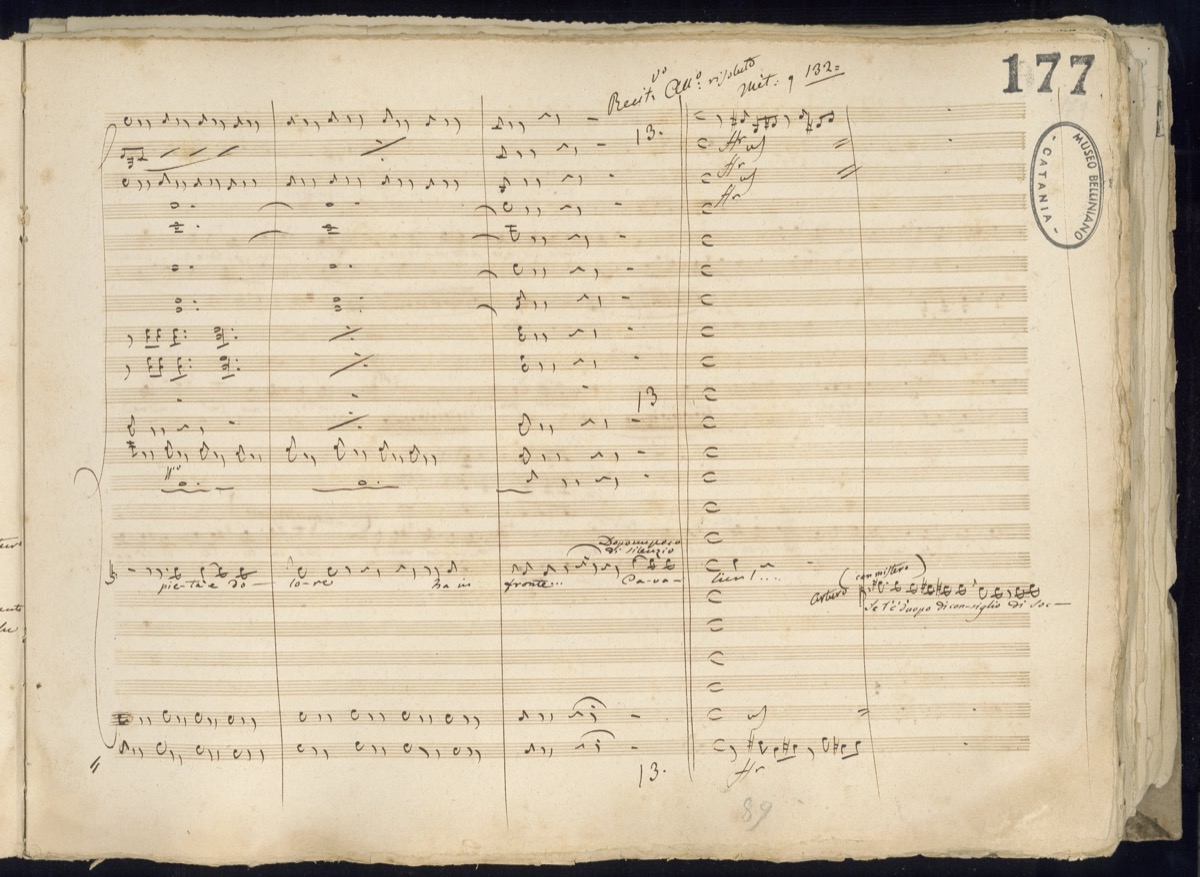 177
Recit.vo All.o risoluto
Met: 132=
MUSEO BELLINIANO
- CATANIA -
13.
13
Dopo un poco
di silenzio
pietà e do- lo-re ha in fronte... Ca-va- lier!....
(con mistero)
Arturo
Se t'è d'uopo di con-siglio di soc-
13.
89